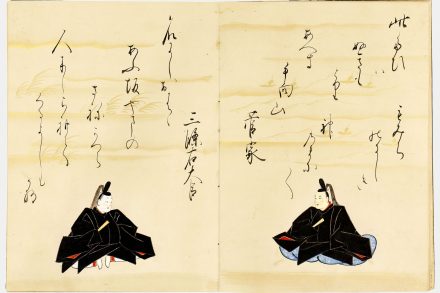 此たひ
ぬさも
とり
あへす
手向山
菅家
もみち
のにしき
神
三條右大臣
名にしおはゝ
あふ坂やまの
さねかつら
人にしられて
くるよしも